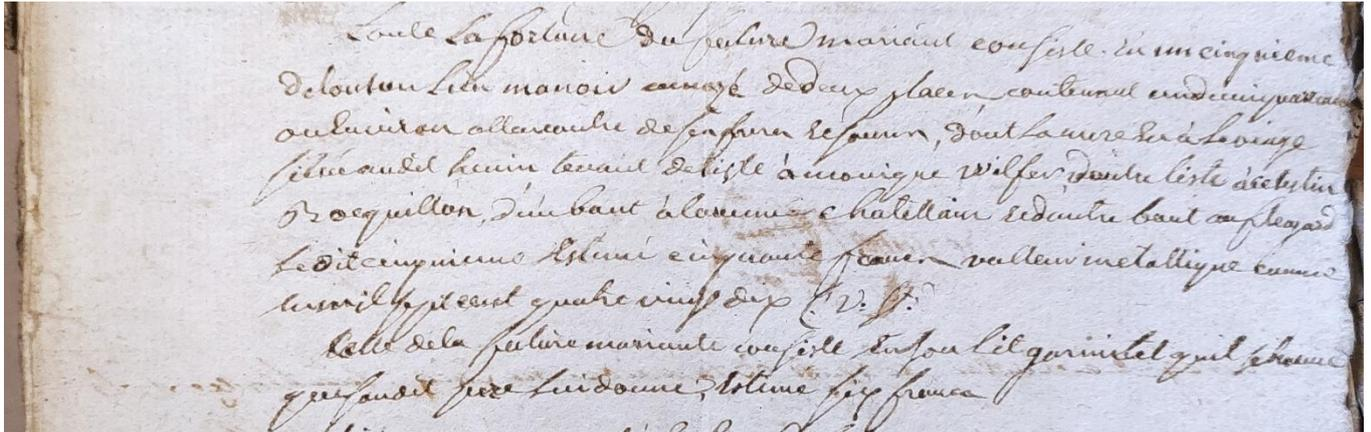 toute la fortune du future mariant consiste en un cinquieme
de tout un lieu manoir amazé de deux places contenant
ou environ allencontre de ses freres et soeurs, dont la mere en a le
situé audit henin tenant de liste à monique Wilfer d'autre liste à celestin
Rocquillon, d'un bout à la veuve Chatellain et d'autre bout au flegard
ledit cinquieme Estimé cinquante francs valleur metallique comme
en mil sept cent quatre vingt dix (v. st.)
Celle de la future mariante consiste En son lit garni tel qu'il se trouve
que son dit pere lui donne, Estimé six francs